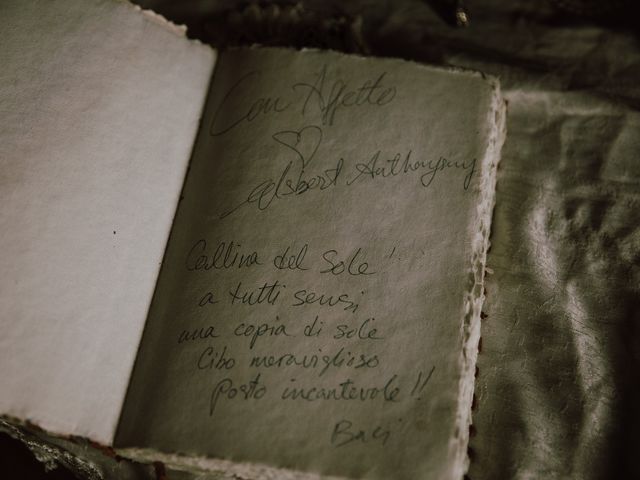 Con Affetto
Anthony
Collina del Sole!
a tutti sensi
una copia di sole
Cibo meraviglioso
posto incantevole!!
Baci